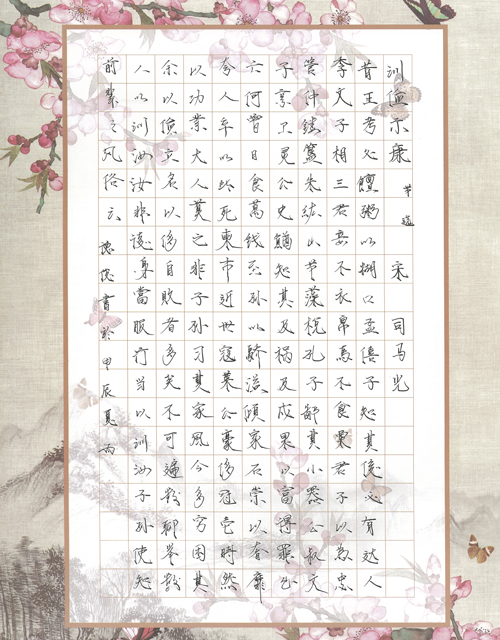 訓儉示康 節選 宋 司馬光
昔正考父饘粥以糊口孟僖子知其後必有达人
季文子相三君妾不衣帛馬不食粟君子以為忠
管仲鏤簋朱紘山节藻棁孔子鄙其小器公叔文
子享卫灵公史鰌知其及祸及戌果以富得罪出
亡何曾日食萬钱至孙以驕溢傾家石崇以奢靡
夸人卒以此死東市近世寇莱公豪侈冠時然
以功業大人莫之非子孙习其家風今多穷困其
余以儉立名以侈自敗者多矣不可遍数聊举数
人以訓汝汝非徒身當服行当以訓汝子孙使知
前輩之风俗云 書於甲辰夏雨